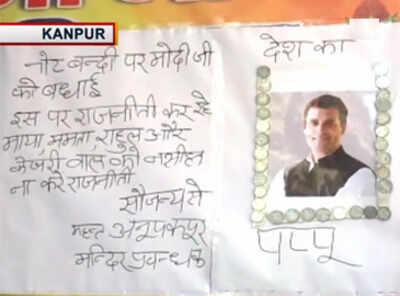 KANPUR
नोट बन्दी पर मोदी जी
को बधाई
इस पर राजनीती कर रहे
माया, ममता, राहुल और
केजरी वाल को नसीहत
ना करे राजनीती
सौजन्य से
महन्त अनूप कपूर
मन्दिर प्रबन्धक
देश का
पप्पू